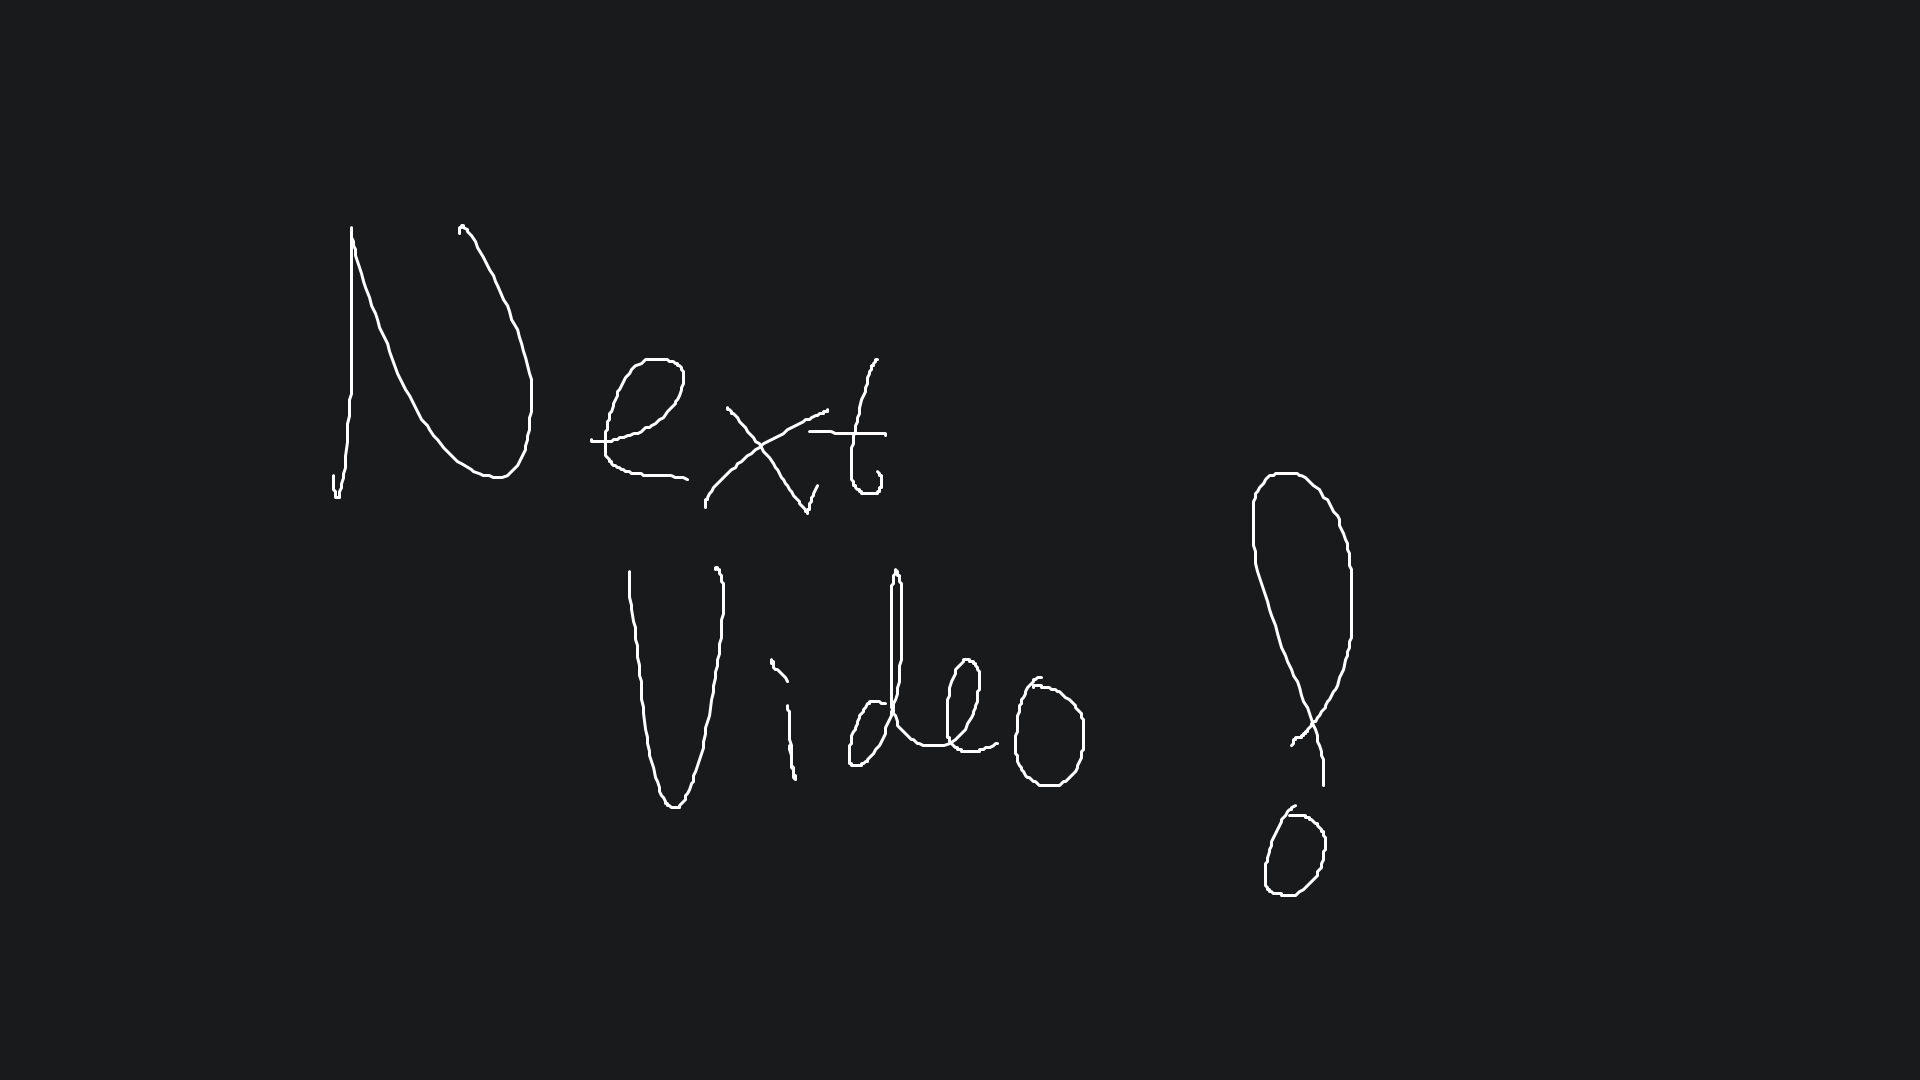 Next
Video!